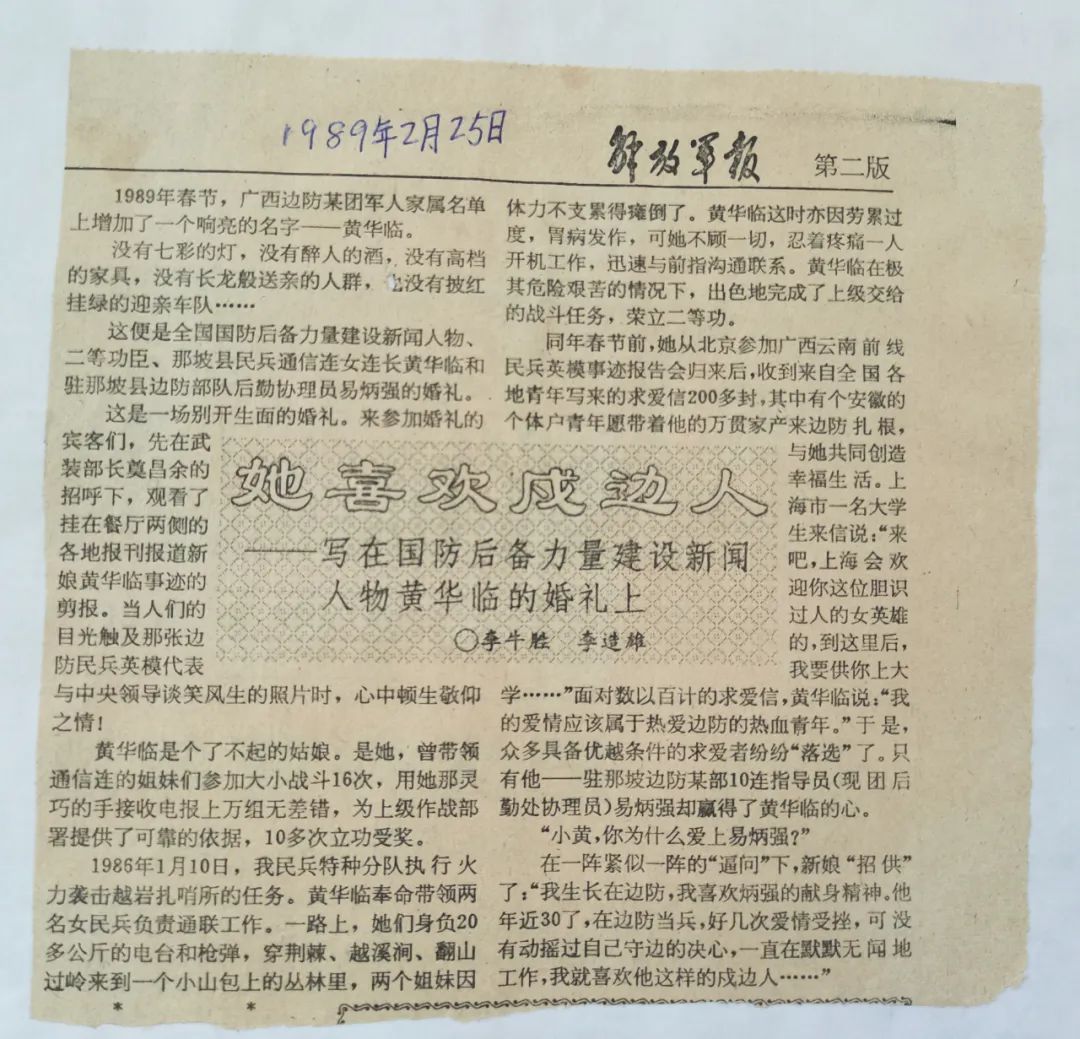 1989年2月25日
解放军报 第二版
1989年春节，广西边防某团军人家属名单
上增加了一个响亮的名字——黄华临。
没有七彩的灯，没有醉人的酒，没有高档
的家具，没有长龙般送亲的人群，没有披红
挂绿的迎亲车队……
这便是全国国防后备力量建设新闻人物、
二等功臣、那坡县民兵通信连女连长黄华临和
驻那坡县边防部队后勤协理员易炳强的婚礼。
这是一场别开生面的婚礼。来参加婚礼的
宾客们，先在武
装部长奠昌余的
招呼下，观看了
挂在餐厅两侧的
各地报刊报道新
娘黄华临事迹的
剪报。当人们的
目光触及那张边
防民兵英模代表
与中央领导谈笑风生的照片时，心中顿生敬仰
之情！
黄华临是个了不起的姑娘。是她，曾带领
通信连的姐妹们参加大小战斗16次，用她那灵
巧的手接收电报上万组无差错，为上级作战部
署提供了可靠的依据，10多次立功受奖。
1986年1月10日，我民兵特种分队执行火
力袭击越岩扎哨所的任务。黄华临奉命带领两
名女民兵负责通联工作。一路上，她们身负20
多公斤的电台和枪弹，穿荆棘、越溪涧、翻山
过岭来到一个小山包上的丛林里，两个姐妹因
* *
她喜欢戍边人
——写在国防后备力量建设新闻
人物黄华临的婚礼上
○李牛胜 李造雄
体力不支累得瘫倒了。黄华临这时亦因劳累过
度，胃病发作，可她不顾一切，忍着疼痛一人
开机工作，迅速与前指沟通联系。黄华临在极
其危险艰苦的情况下，出色地完成了上级交给
的战斗任务，荣立二等功。
同年春节前，她从北京参加广西云南前线
民兵英模事迹报告会归来后，收到来自全国各
地青年写来的求爱信200多封，其中有个安徽的
个体户青年愿带着他的万贯家产来边防扎根，
与她共同创造
幸福生活。上
海市一名大学
生来信说：“来
吧，上海会欢
迎你这位胆识
过人的女英雄
的，到这里后，
我要供你上大
学……”面对数以百计的求爱信，黄华临说：“我
的爱情应该属于热爱边防的热血青年。”于是，
众多具备优越条件的求爱者纷纷“落选”了。只
有他——驻那坡边防某部10连指导员（现团后
勤处协理员）易炳强却赢得了黄华临的心。
“小黄，你为什么爱上易炳强？”
在一阵紧似一阵的“逼问”下，新娘“招供”
了：“我生长在边防，我喜欢炳强的献身精神。他
年近30了，在边防当兵，好几次爱情受挫，可没
有动摇过自己守边的决心，一直在默默无闻地
工作，我就喜欢他这样的戍边人……”